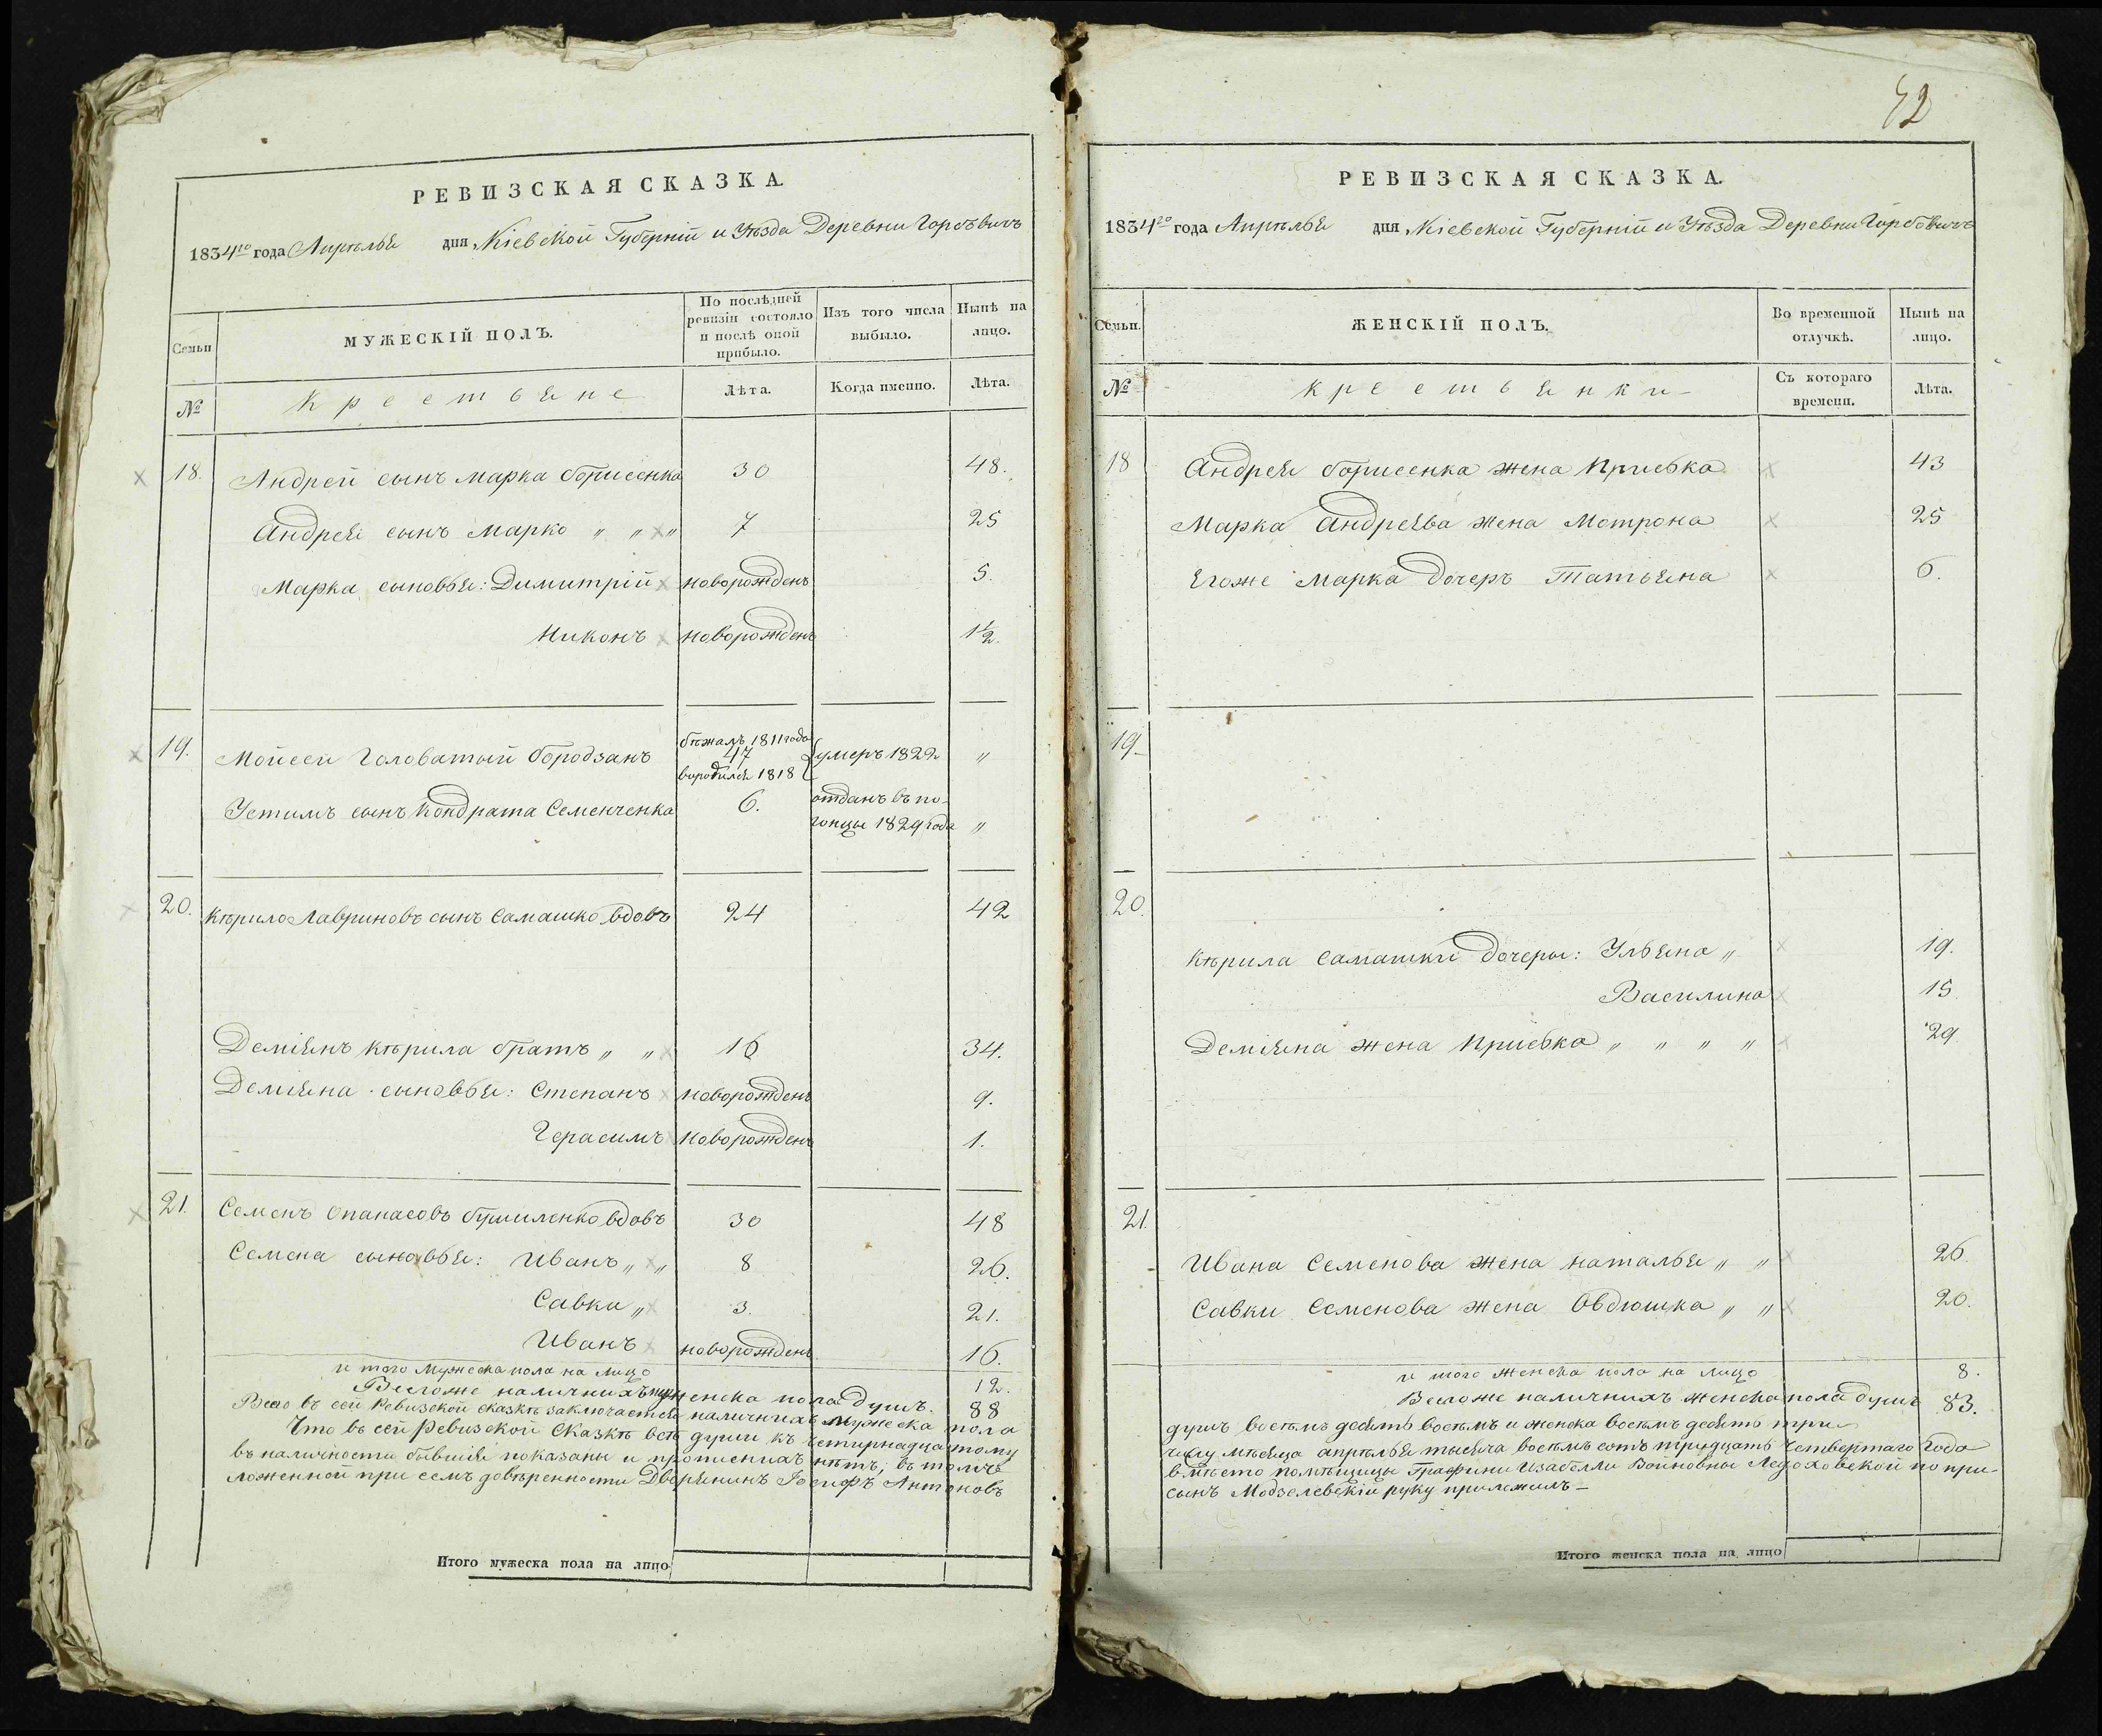 РЕВИЗСКАЯ СКАЗКА.
1834го года Апрѣлья дня Кіевской Губерніи и Уѣзда Деревни Горбовичъ
Семьи
МУЖЕСКІЙ ПОЛЪ.
По послѣдней ревизіи состояло и послѣ оной прибыло.
Изъ того числа выбыло.
Нынѣ на лицо.
№
Крестьяне
Лѣта.
Когда именно.
Лѣта.
18. Андрей сынъ Марка Борисенка 30 48.
Андрея сынъ Марко „ „ „ 7 25
Марка сыновья: Димитрій новорожденъ 5.
Никонъ новорожденъ 1½.
19. Мойсей Головатый Бородзанъ бѣжалъ 1811 года 47 воротился 1818 умеръ 1822 „
Устимъ сынъ Кондрата Семенченка 6. отданъ въ погонцы 1829 года „
20. Кѣрило Лавриновъ сынъ Самашко вдовъ 24 42
Деміянъ Кѣрила братъ „ „ 16 34.
Деміяна сыновья: Степанъ новорожденъ 9.
Герасимъ новорожденъ 1.
21. Семенъ Опанасовъ Бушиленко вдовъ 30 48
Семена сыновья: Иванъ „ „ 8 26.
Савка „ 3. 21.
Иванъ новорожденъ 16.
и того мужеска пола на лицо 12.
Всегоже наличнихъ мужеска пола душъ. 88
Всего въ сей Ревизской сказкѣ заключается наличнихъ мужеска пола
Что въ сей Ревизской Сказкѣ всѣ души къ четирнадцатому
въ наличности бывшія показаны и прописнихъ нѣтъ, въ томъ
ложенной при семъ довѣренности Дворянинъ Іосифъ Антоновъ
Итого мужеска пола на лицо
42
РЕВИЗСКАЯ СКАЗКА.
1834го года Апрѣлья дня Кіевской Губерніи и Уѣзда Деревни Горбовичъ
Семьи.
ЖЕНСКІЙ ПОЛЪ.
Во временной отлучкѣ.
Нынѣ на лицо.
№
Крестьянки
Съ котораго времени.
Лѣта.
18 Андрея Борисенка жена Приська 43
Марка Андреява жена Мотрона 25
Егоже Марка дочеръ Татьяна 6.
19
20.
Кѣрила Самашки дочеры: Ульяна „ 19.
Василина 15
Деміяна жена Приська „ „ „ „ 29
21.
Ивана Семенова жена Наталья „ „ 26.
Савки Семенова жена Овдюшка „ „ 20.
и того женска пола на лицо 8.
Всегоже наличнихъ женска пола душъ 83.
душъ восѣмъ десятъ восѣмъ и женска восѣмъ десятъ три
числу мѣсяца апрѣлья тысяча восѣмъ сотъ тридцать четвертаго года
вмѣсто помѣщицы Графини Изабелли Войновны Ледоховской по при-
сынъ Модзелевскій руку приложилъ
Итого женска пола на лицо